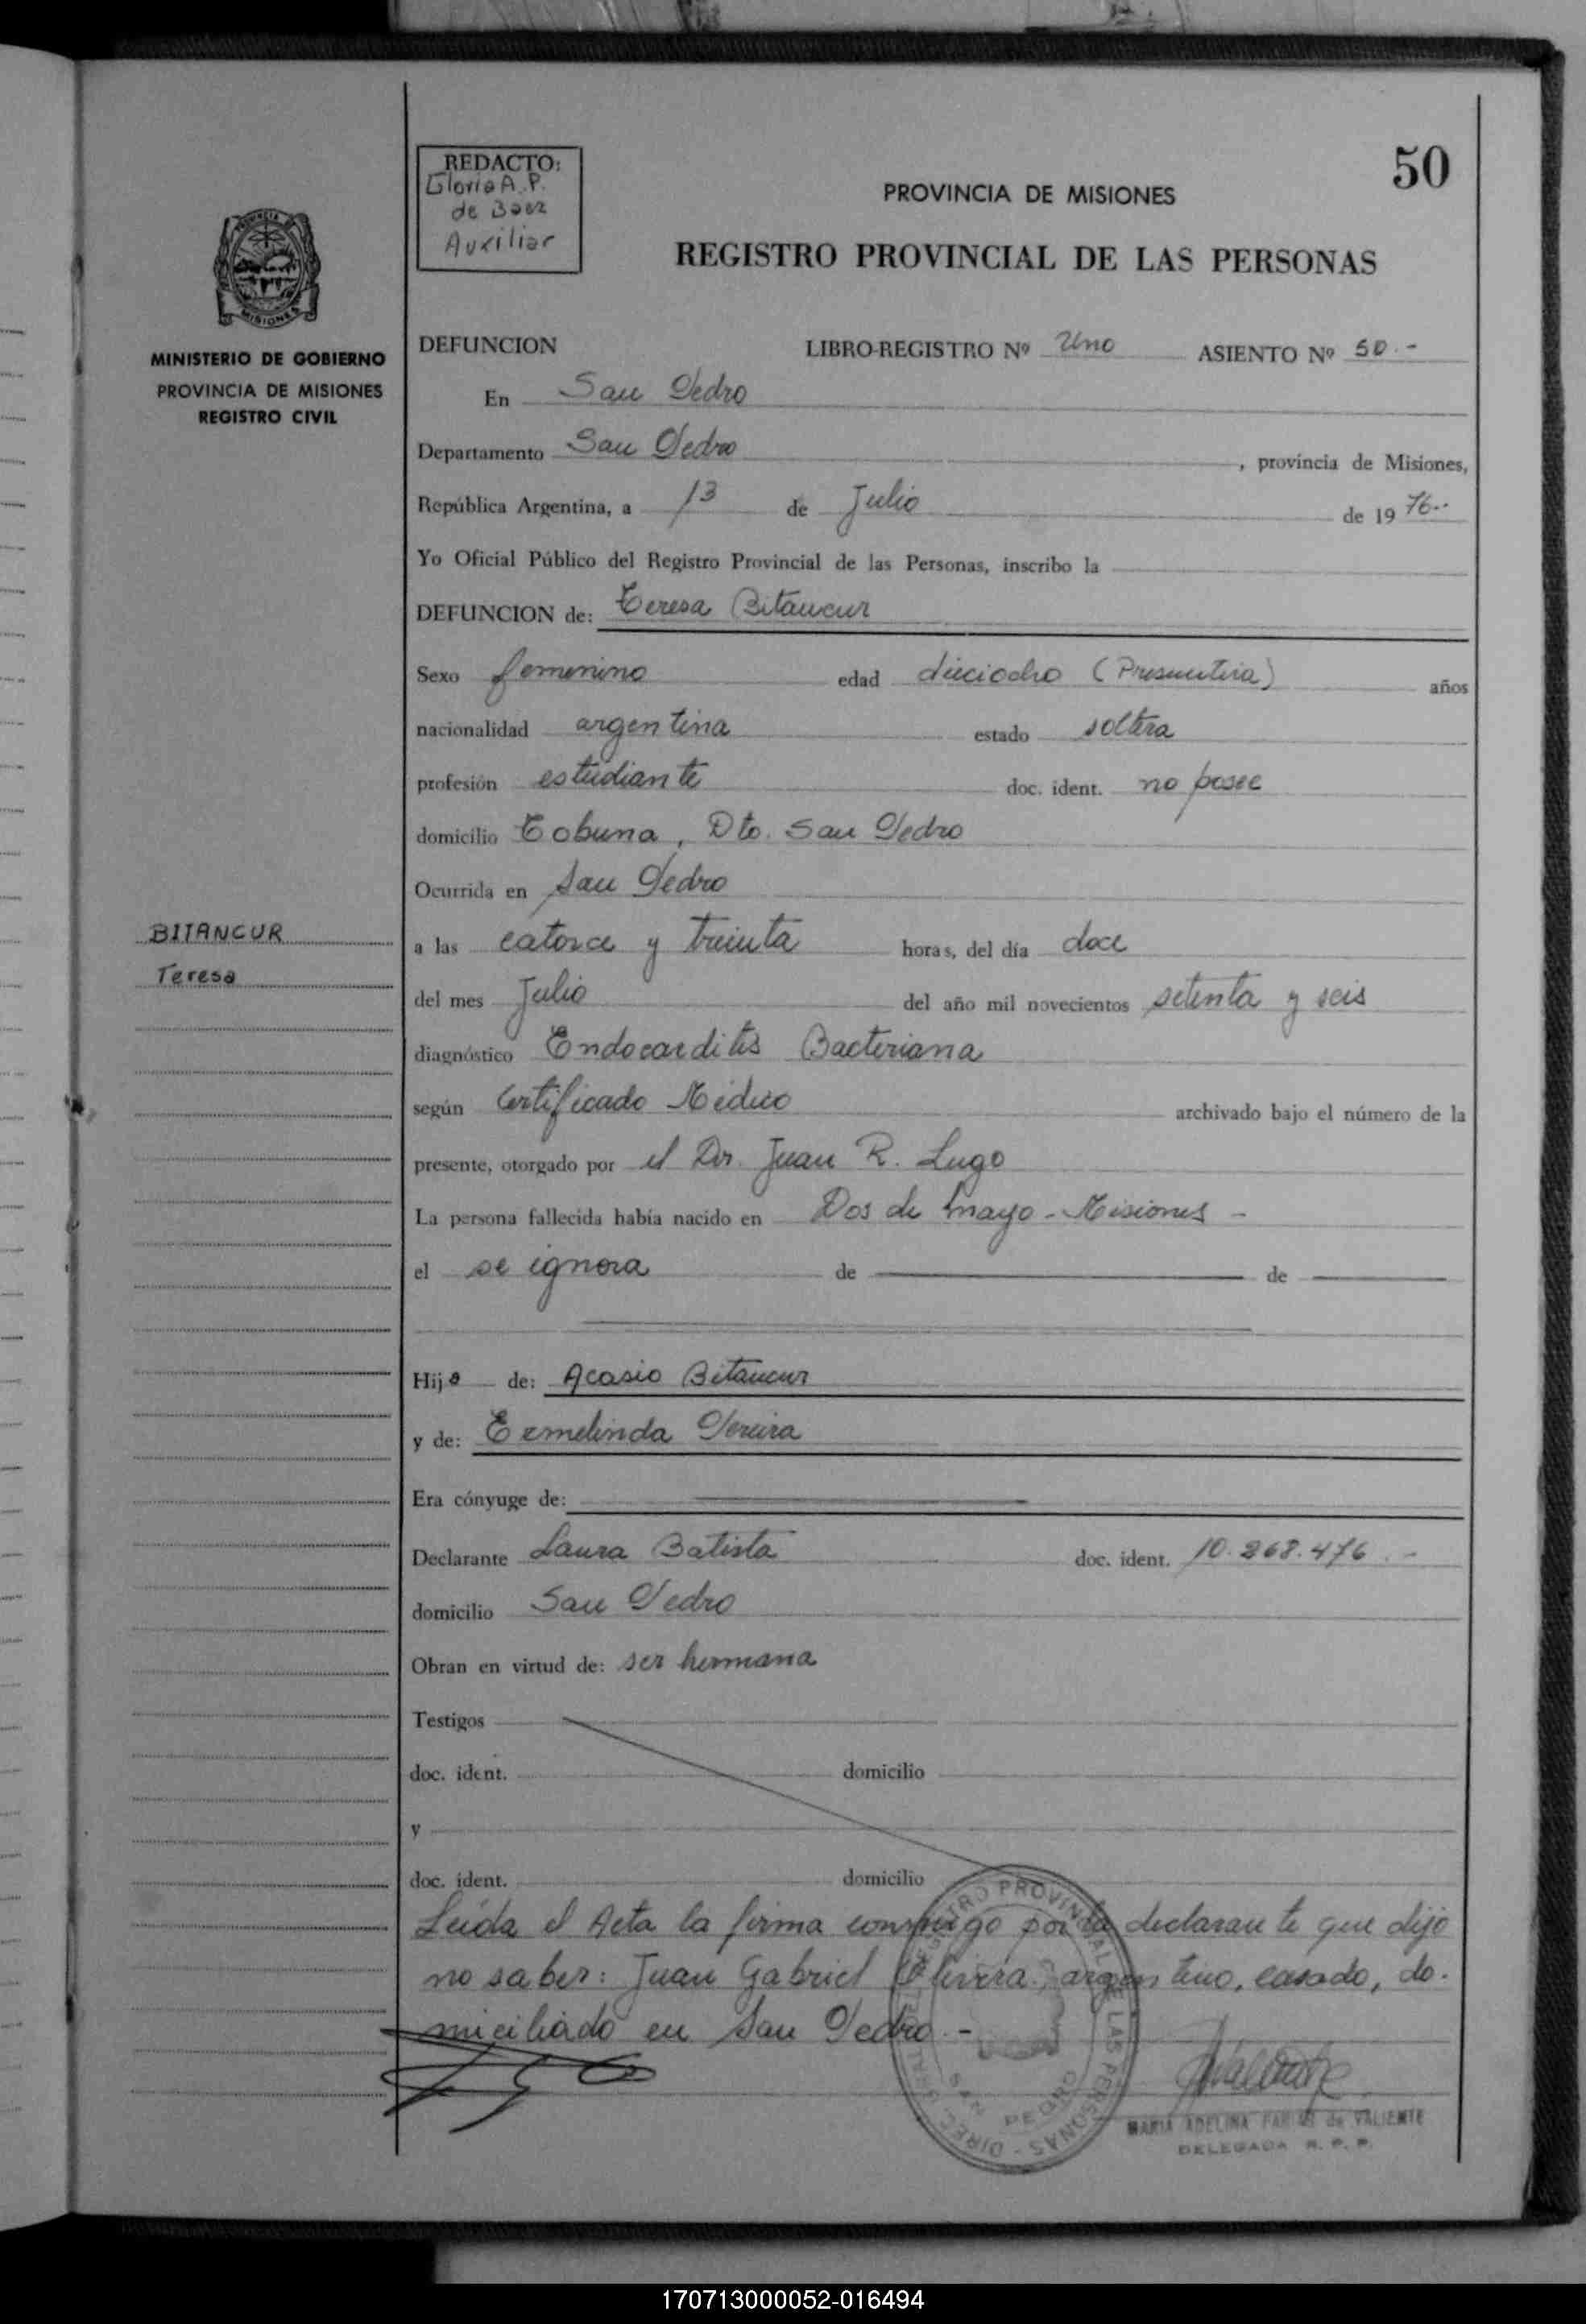 50
REDACTO:
Gloria A. P.
de Baez
Auxiliar
PROVINCIA DE MISIONES
REGISTRO PROVINCIAL DE LAS PERSONAS
MISIONES
MINISTERIO DE GOBIERNO
PROVINCIA DE MISIONES
REGISTRO CIVIL
DEFUNCION LIBRO-REGISTRO Nº Uno ASIENTO Nº 50.-
En San Pedro
Departamento San Pedro, provincia de Misiones,
República Argentina, a 13 de Julio de 1976.-
Yo Oficial Público del Registro Provincial de las Personas, inscribo la
DEFUNCION de: Teresa Bitancur
Sexo femenino edad dieciocho (Presuntiva) años
nacionalidad argentina estado soltera
profesión estudiante doc. ident. no posee
domicilio Tobuna, Dto. San Pedro
Ocurrida en San Pedro
BITANCUR
Teresa
a las catorce y treinta horas, del día doce
del mes Julio del año mil novecientos setenta y seis
diagnóstico Endocarditis Bacteriana
según Certificado Médico archivado bajo el número de la
presente, otorgado por el Dr. Juan R. Lugo
La persona fallecida había nacido en Dos de Mayo - Misiones -
el se ignora de de
Hija de: Acasio Bitancur
y de: Ermelinda Pereira
Era cónyuge de:
Declarante Laura Batista doc. ident. 10.268.476.-
domicilio San Pedro
Obran en virtud de: ser hermana
Testigos
doc. ident. domicilio
y
doc. ident. domicilio
Leída el Acta la firma conmigo por la declarante que dijo
no saber: Juan Gabriel Olivera, argentino, casado, do-
miciliado en San Pedro.-
REGISTRO PROVINCIAL DE LAS PERSONAS - DIREC
SAN PEDRO
MARIA ADELINA FARIAS de VALIENTE
DELEGADA R. P. P.
170713000052-016494